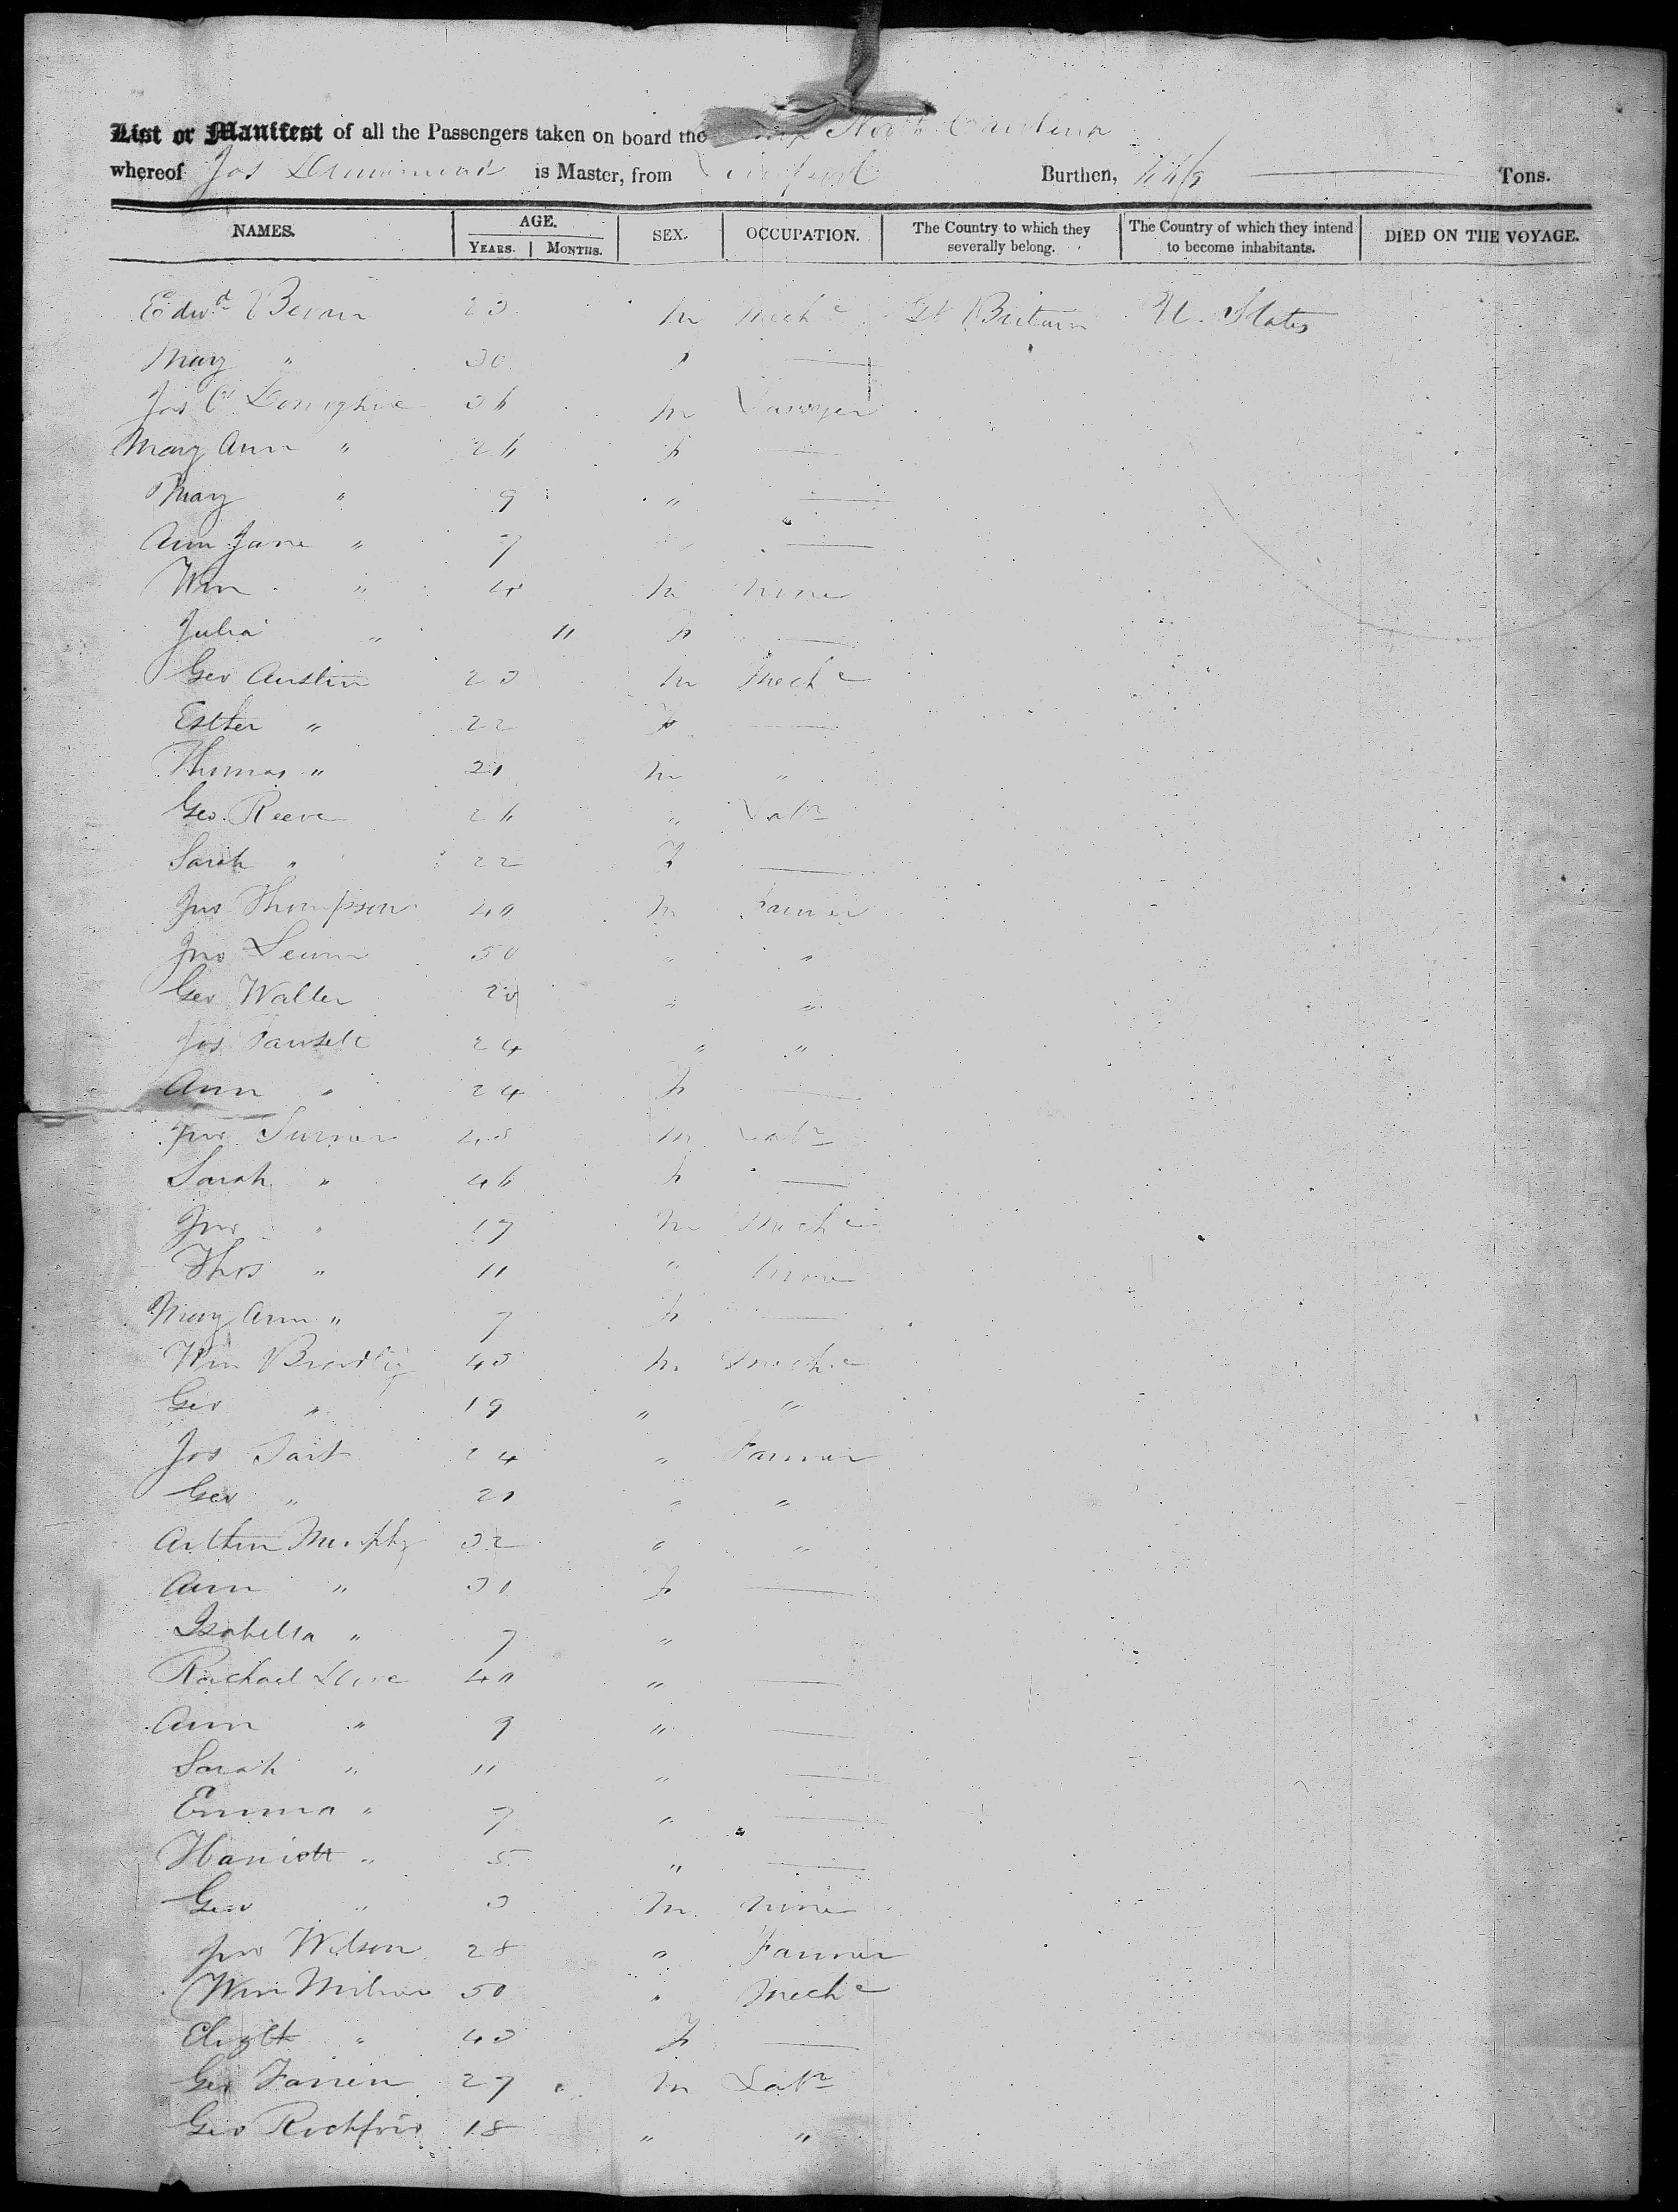 List or Manifest of all the Passengers taken on board the Ship North Carolina
whereof Jos Drummond is Master, from Liverpool Burthen, Tons.
NAMES. AGE. SEX. OCCUPATION. The Country to which they severally belong. The Country of which they intend to become inhabitants. DIED ON THE VOYAGE.
YEARS. MONTHS.
Edwd Bevan 23 M Mechc Gt Britain U. States
Mary " 30 F
Jas O'Donoghue 36 M Sawyer
Mary Ann " 26 F
Mary " 9 "
Ann Jane " 7 "
Wm " 4 M none
Julia " 11 F
Geo Austin 23 M Mechc
Esther " 22 F
Thomas " 21 M "
Geo. Reeve 26 " Labr
Sarah " 22 F
Jno Thompson 40 M Farmer
Jno 50 " "
Geo Walter 20 " "
Jos Fawsett 24 " "
Ann " 24 F
Jno Turner 48 M Labr
Sarah " 46 F
Jno " 17 M Mechc
Thos " 11 " none
Mary Ann " 7 F
Wm Bradley 43 M Mechc
Geo " 19 " "
Jos Tart 24 " Farmer
Geo " 21 " "
Arthur Murphy 32 " "
Ann " 30 F
Isabella " 7 "
Rachael 40 "
Ann " 9 "
Sarah " 11 "
Emma " 7 "
Harriett " 5 "
Geo " 3 M none
Jno Wilson 28 " Farmer
Wm Milner 50 " Mechc
Elizth " 43 F
Geo Farren 27 M Labr
Geo Rochford 18 " "